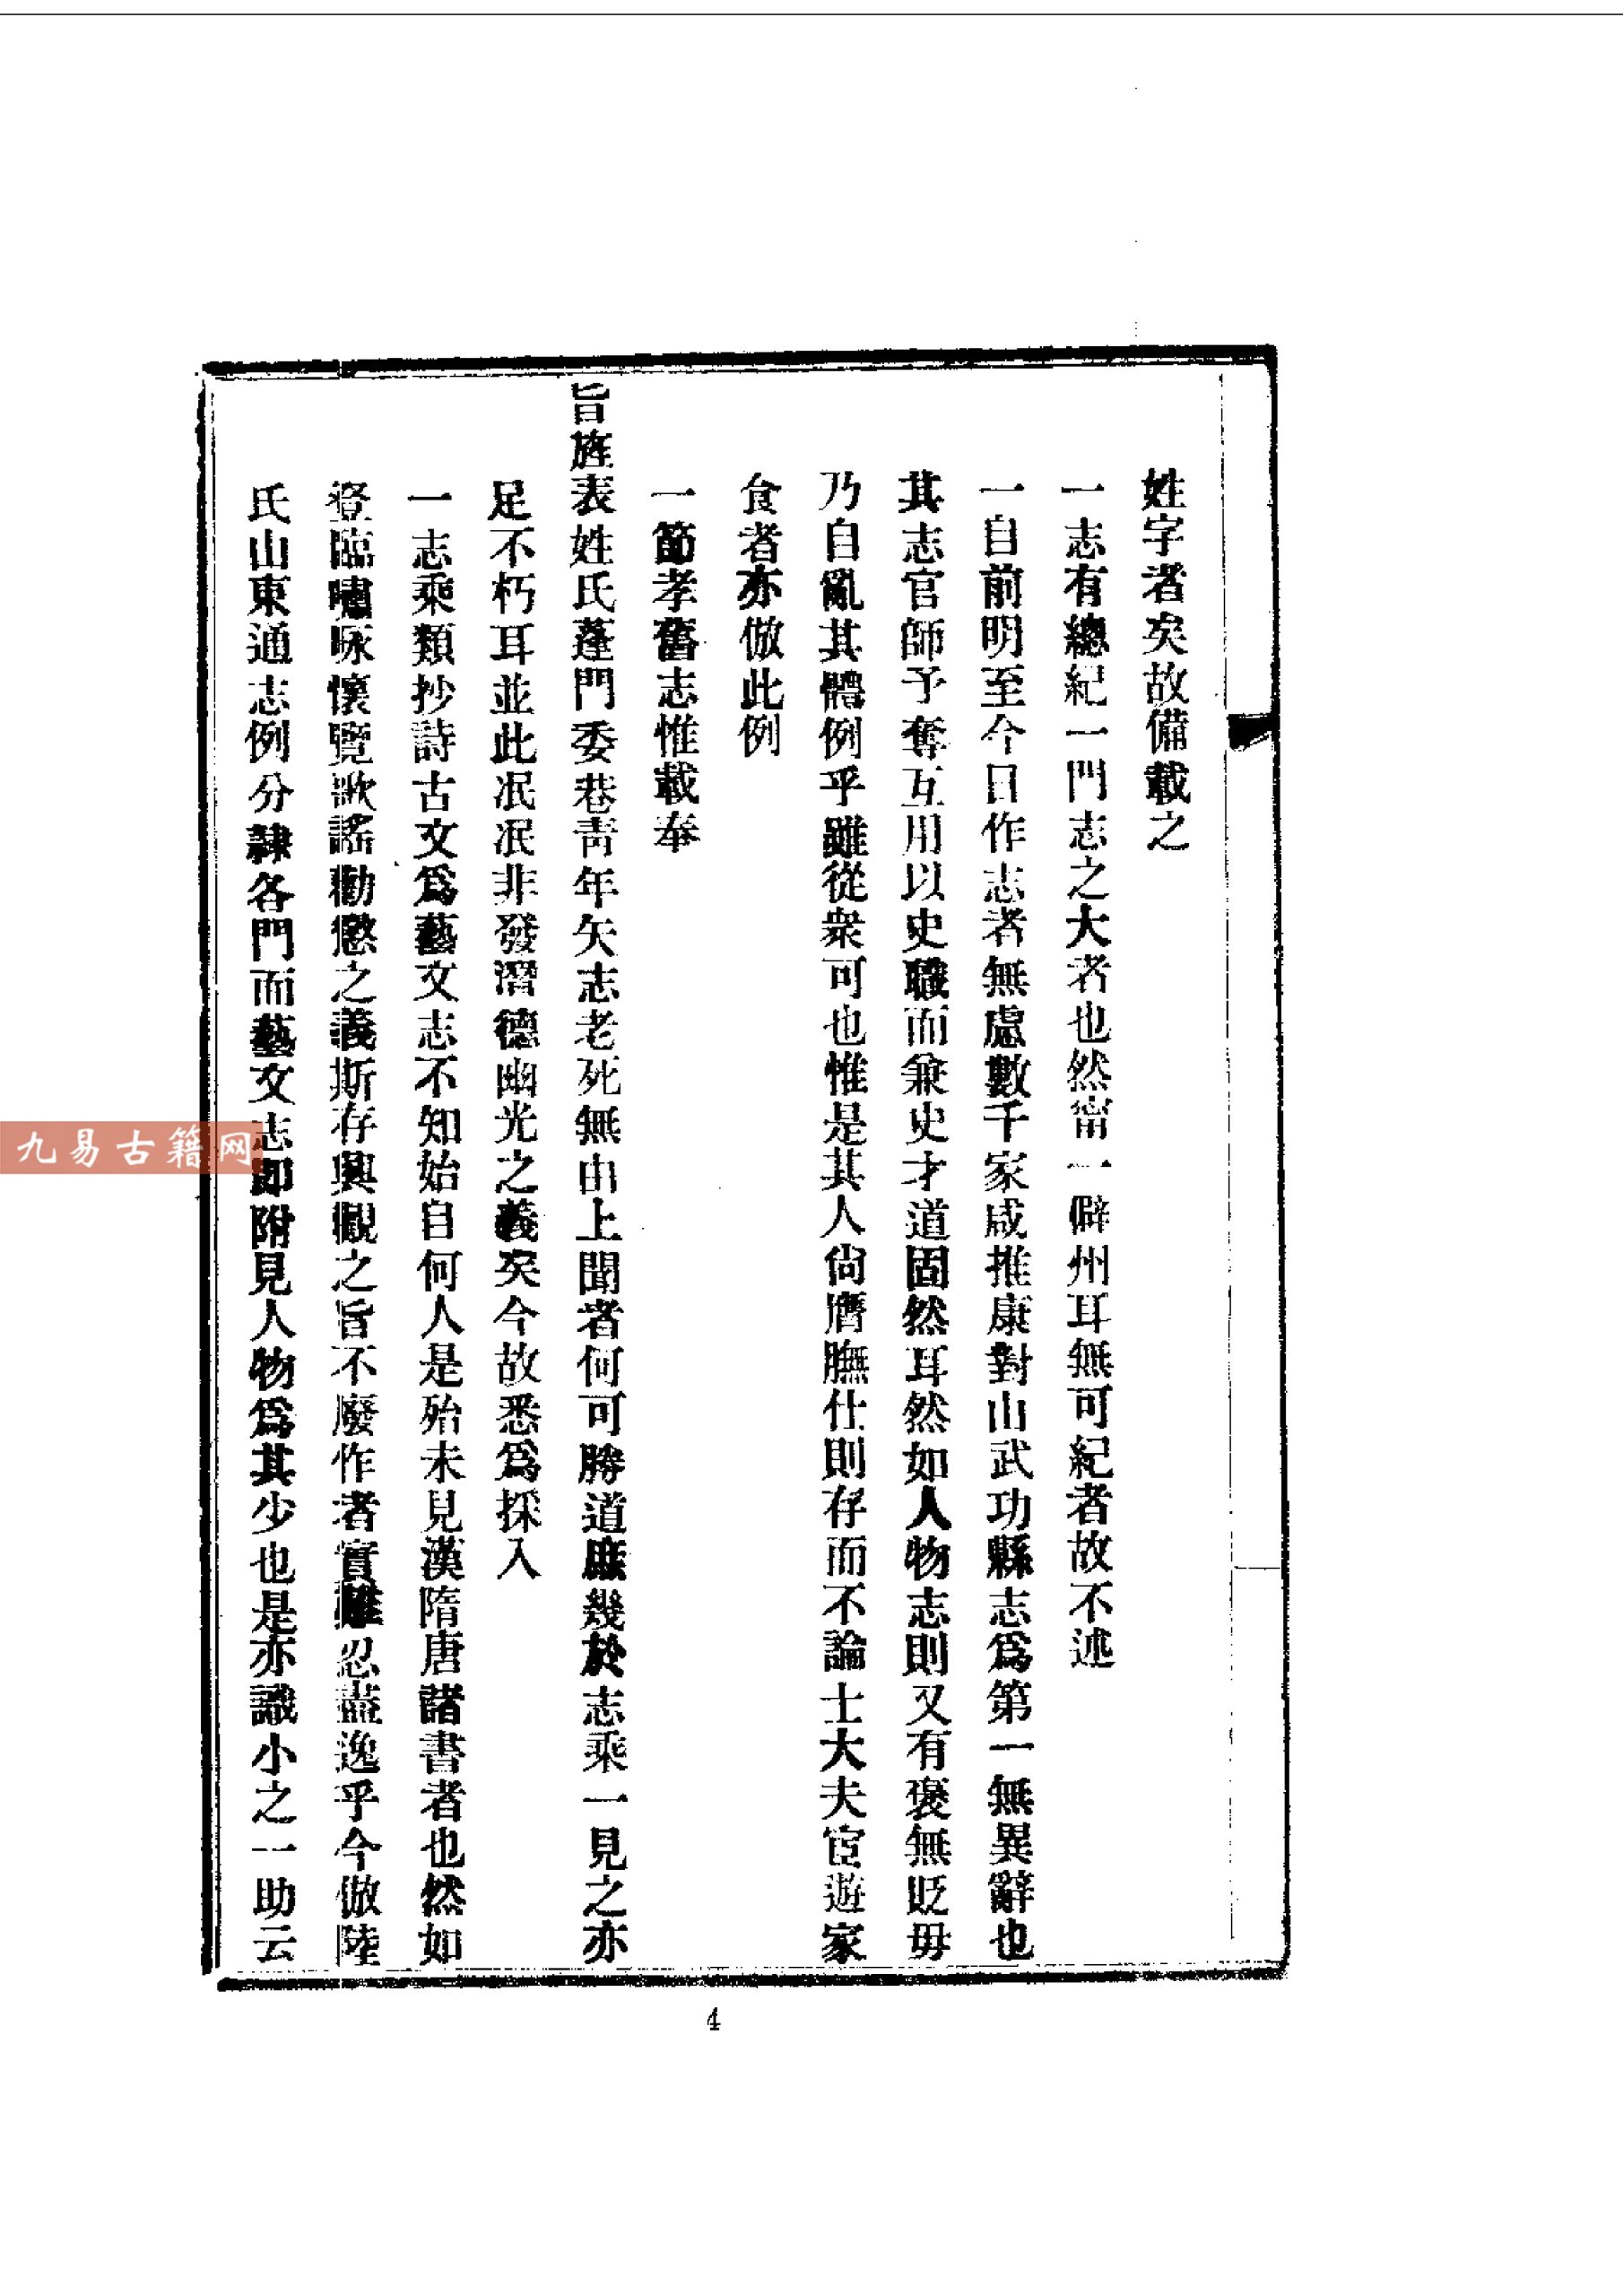 姓字者矣故備載之
一志有總紀一門志之大者也然甯一僻州耳無可紀者故不述
一自前明至今日作志者無慮數千家咸推康對山武功縣志爲第一無異辭也
其志官師予奪互用以史職而兼史才道固然耳然如人物志則又有褒無貶毋
乃自亂其體例乎雖從衆可也惟是其人尙膺膴仕則存而不論士大夫宦遊家
食者亦倣此例
一節孝舊志惟載奉
旨旌表姓氏蓬門委巷靑年矢志老死無由上聞者何可勝道庶幾於志乘一見之亦
足不朽耳並此泯泯非發潛德幽光之義矣今故悉爲採入
一志乘類抄詩古文爲藝文志不知始自何人是殆未見漢隋唐諸書者也然如
登臨嘯咏懷覽歌謠勸懲之義斯存興觀之旨不廢作者實難忍盡逸乎今倣陸
氏山東通志例分隸各門而藝文志卽附見人物爲其少也是亦識小之一助云
4
九易古籍网